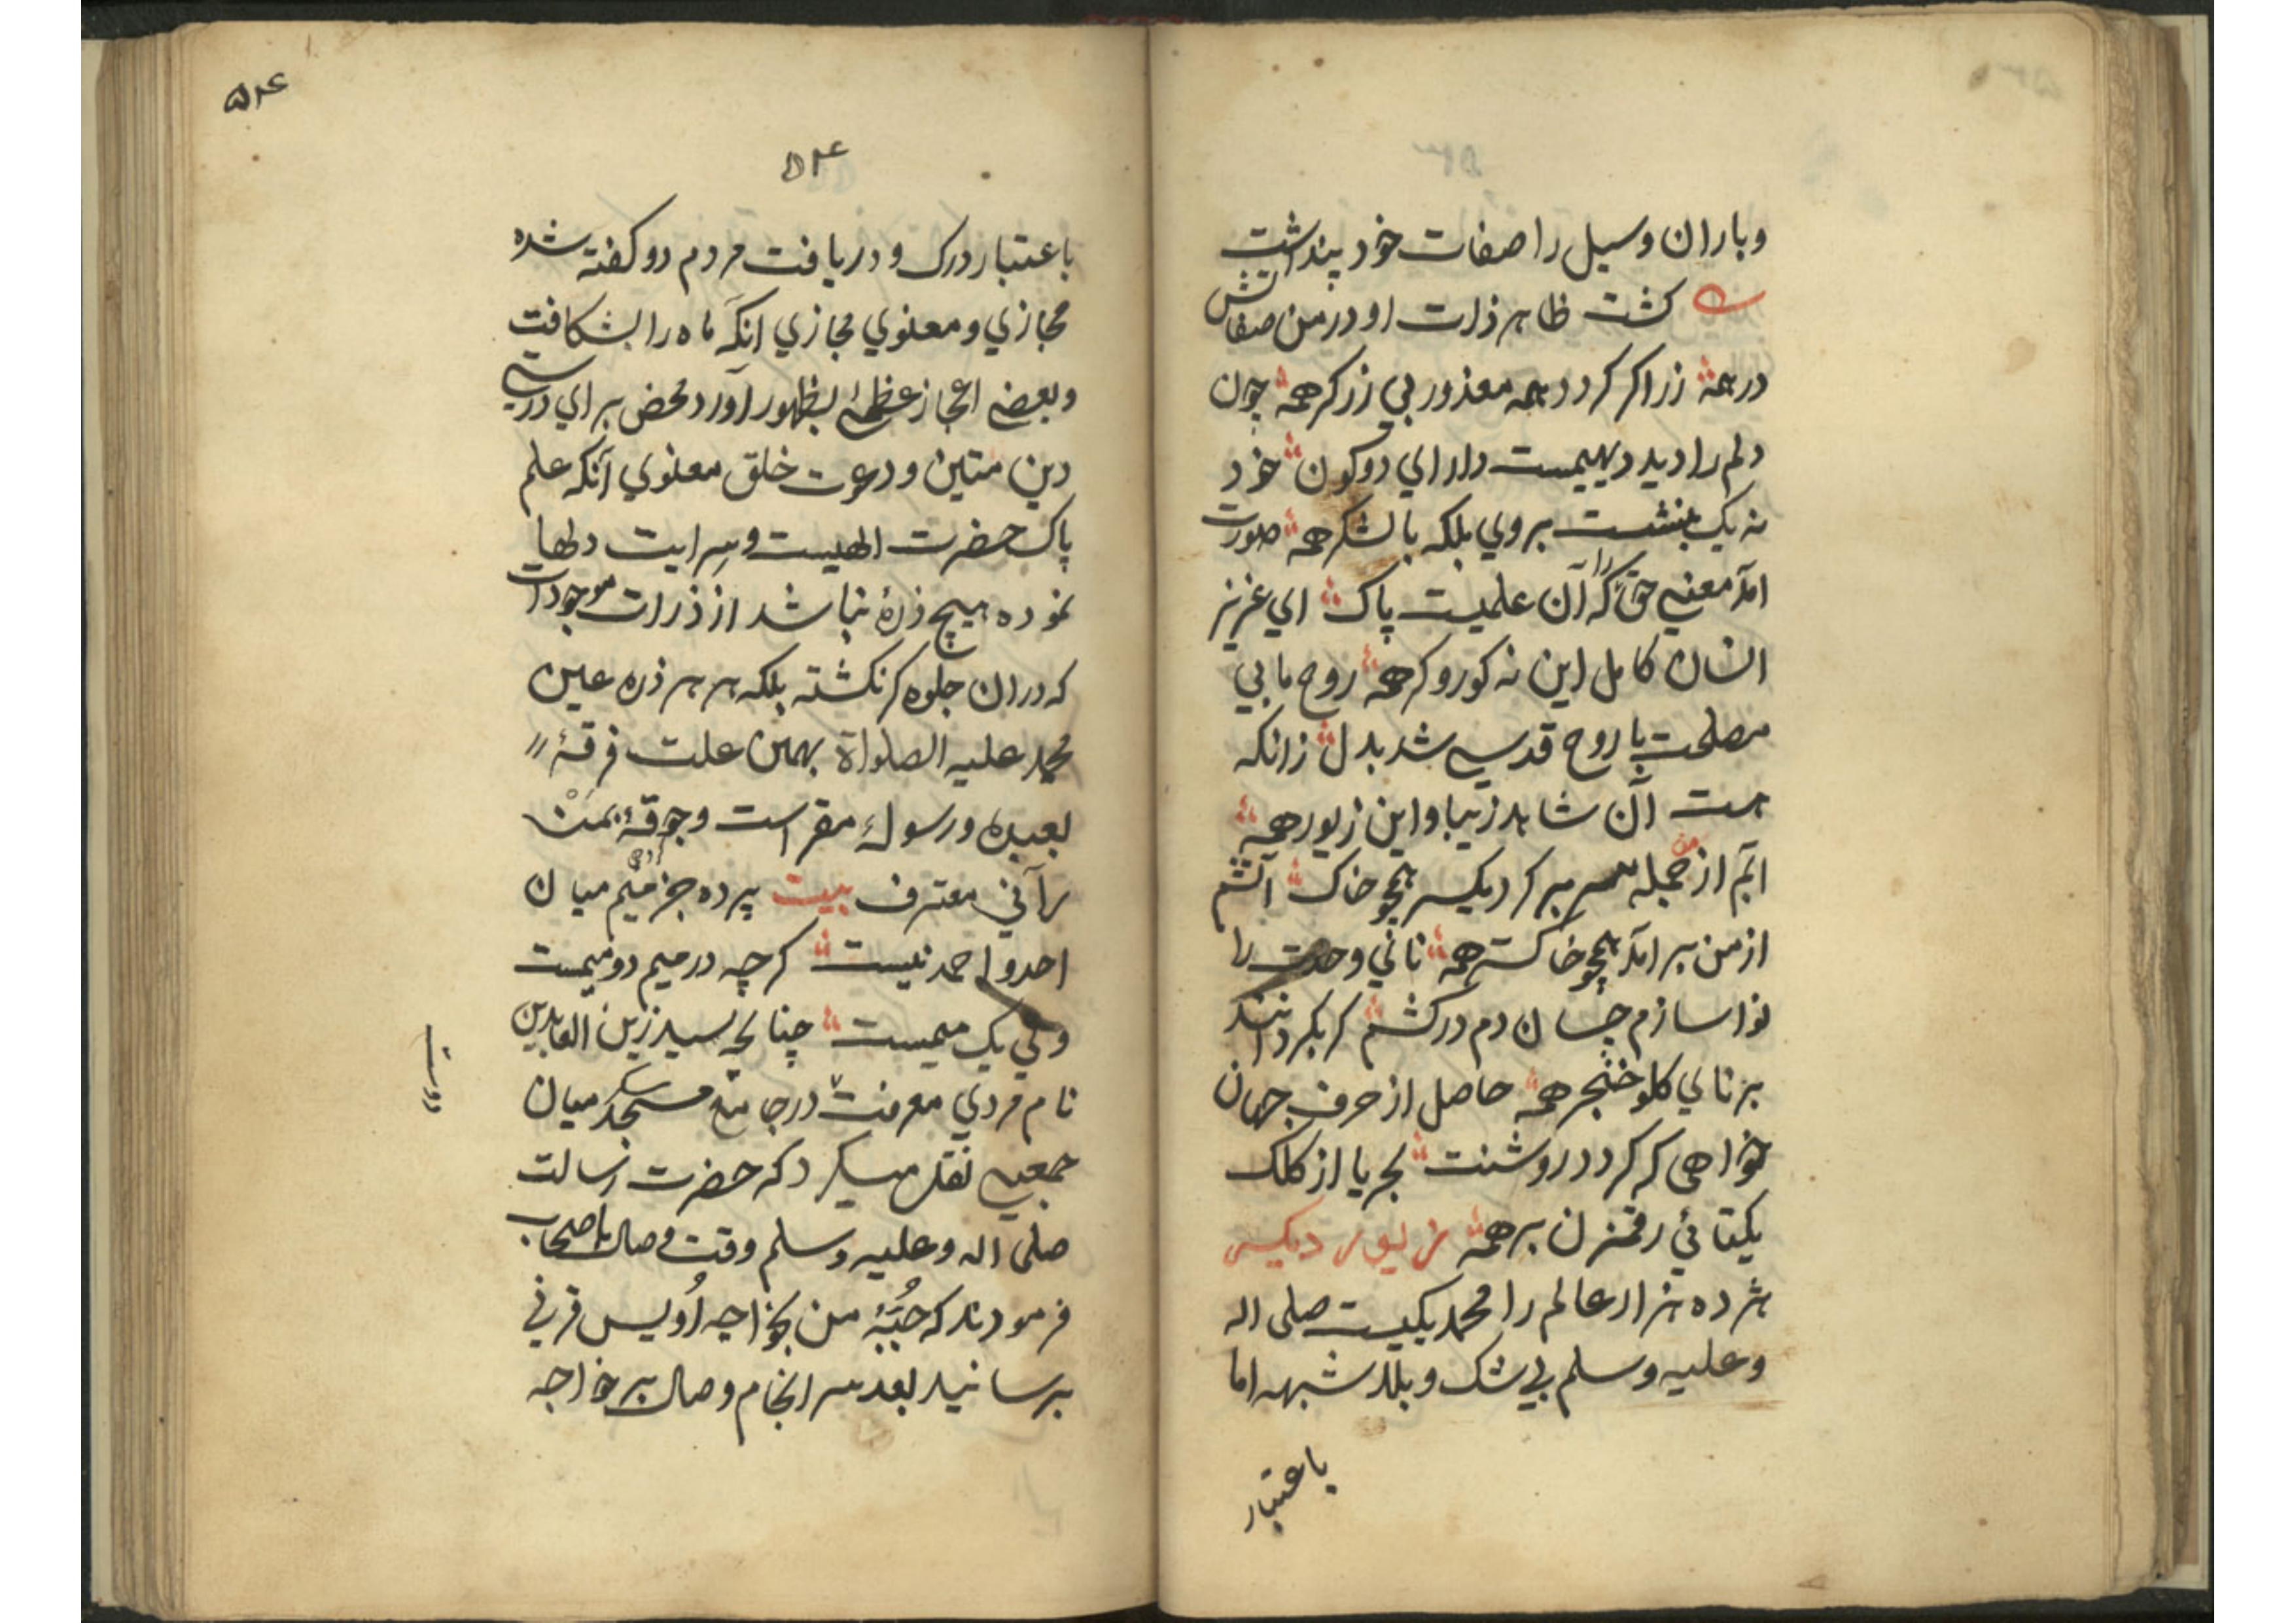 وباران وسیل را صفات خود پنداشت
کشت ظاهر ذات او در من صفاتش
در همه زر اکر کردد همه معذور بی زر کر همه چون
دلم را دید دیهیمست دارای دو کون خود
نه یک بنشست بروی بلکه با لشکر همه صورت
آمد معنیء حق را که آن علمیت پاک ای عزیز
انسان کامل این نه کور و کر همه روح مابی
مصلحت با روح قدسی شد بدل زانکه
هست آن شاهد زیبا و این زیور همه
آبم از جمله من سر بر کرد یکسر همچو خاک آتشم
از من برآمد همچو خاکستر همه نائی وحدت را
نوا سازم چسان دم در کشم کر بکردانند
بر نای کلو خنجر همه حاصل از حرف جهان
خواهی که کردد روشنت بحریا از کلک
یکتائی رقمزن بر همه زیور دیکر
هژده هزار عالم را محمد یکیست صلی اله
وعلیه وسلم بی شک وبلا شبهه اما
باعتبار
۵۲۴
۵۲۴
باعتبار درک و دریافت مردم دو کفته شده
مجازی و معنوی مجازی آنکه ماه را بشکافت
وبعضی اعجاز عظمی بظهور آورد محض برای درستی
دین متین و دعوت خلق معنوی آنکه علم
پاک حضرت الهیست و سرایت دلها
نموده هیچ ذرهٔ نباشد از ذرات موجودات
که در ان جلوه کر نکشته بلکه هر هر ذره عین
محمد علیه الصلواة بهمین علت فرقهٔ
بعبده ورسوله مقر است وجوقهٔ بمن
رآنی معترف بیت پرده جز میم میان
احد و احمد نیست کرچه در میم دو میمست
ولی یک میمست چنانچه سید زین العابدین
نام مردی معرفت در جامع مسجد میان
جمعی نقل میکرد که حضرت رسالت
صلی اله وعلیه وسلم وقت وصال باصحاب
فرمودند که جبّهٔ من بخواجه اُویس قرنی
برسانید بعد سرانجام وصال بر خواجه